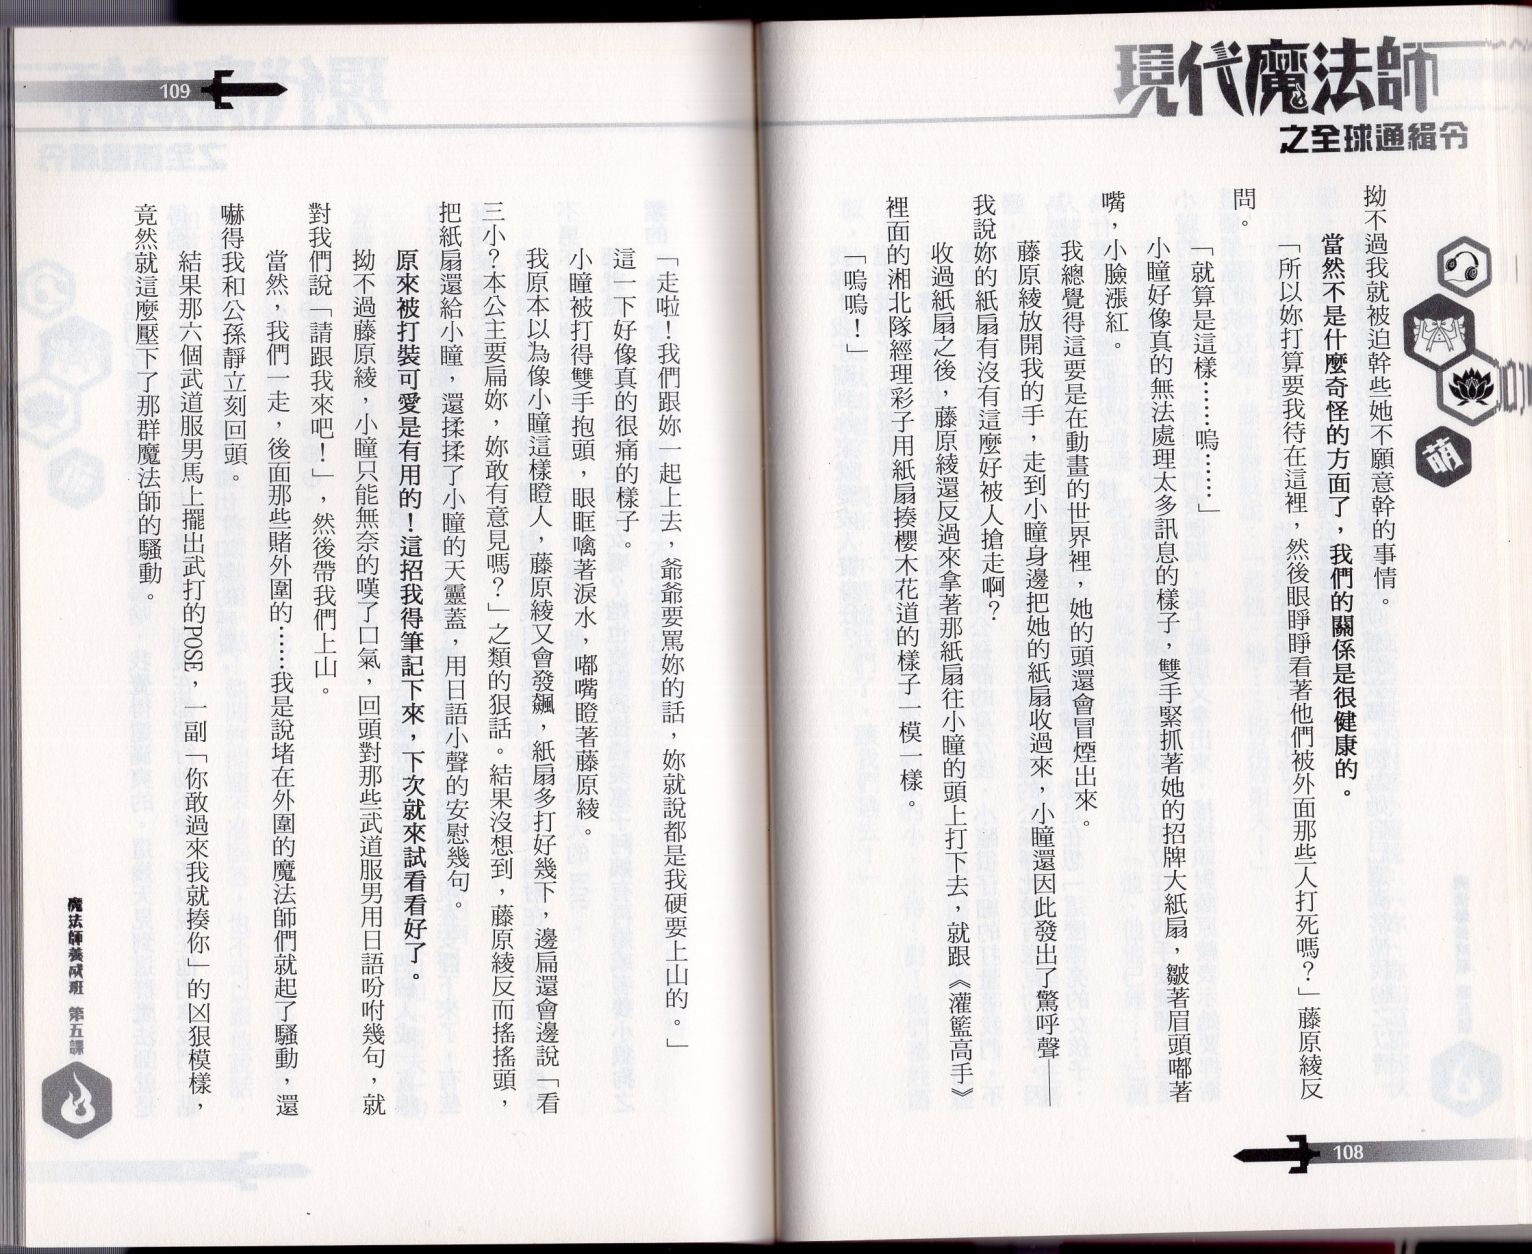 現代魔法師
之全球通緝令
萌
拗不過我就被迫幹些她不願意幹的事情。
當然不是什麼奇怪的方面了，我們的關係是很健康的。
「所以妳打算要我待在這裡，然後眼睜睜看著他們被外面那些人打死嗎？」藤原綾反
問。
「就算是這樣……嗚……」
小瞳好像真的無法處理太多訊息的樣子，雙手緊抓著她的招牌大紙扇，皺著眉頭嘟著
嘴，小臉漲紅。
我總覺得這要是在動畫的世界裡，她的頭還會冒煙出來。
藤原綾放開我的手，走到小瞳身邊把她的紙扇收過來，小瞳還因此發出了驚呼聲——
我說妳的紙扇有沒有這麼好被人搶走啊？
收過紙扇之後，藤原綾還反過來拿著那紙扇往小瞳的頭上打下去，就跟《灌籃高手》
裡面的湘北隊經理彩子用紙扇揍櫻木花道的樣子一模一樣。
「嗚嗚！」
108
109
「走啦！我們跟妳一起上去，爺爺要罵妳的話，妳就說都是我硬要上山的。」
這一下好像真的很痛的樣子。
小瞳被打得雙手抱頭，眼眶噙著淚水，嘟嘴瞪著藤原綾。
我原本以為像小瞳這樣瞪人，藤原綾又會發飆，紙扇多打好幾下，邊扁還會邊說「看
三小？本公主要扁妳，妳敢有意見嗎？」之類的狠話。結果沒想到，藤原綾反而搖搖頭，
把紙扇還給小瞳，還揉揉了小瞳的天靈蓋，用日語小聲的安慰幾句。
原來被打裝可愛是有用的！這招我得筆記下來，下次就來試看看好了。
拗不過藤原綾，小瞳只能無奈的嘆了口氣，回頭對那些武道服男用日語吩咐幾句，就
對我們說「請跟我來吧！」，然後帶我們上山。
當然，我們一走，後面那些賭外圍的……我是說堵在外圍的魔法師們就起了騷動，還
嚇得我和公孫靜立刻回頭。
結果那六個武道服男馬上擺出武打的POSE，一副「你敢過來我就揍你」的凶狠模樣，
竟然就這麼壓下了那群魔法師的騷動。
魔法師養成班 第五課